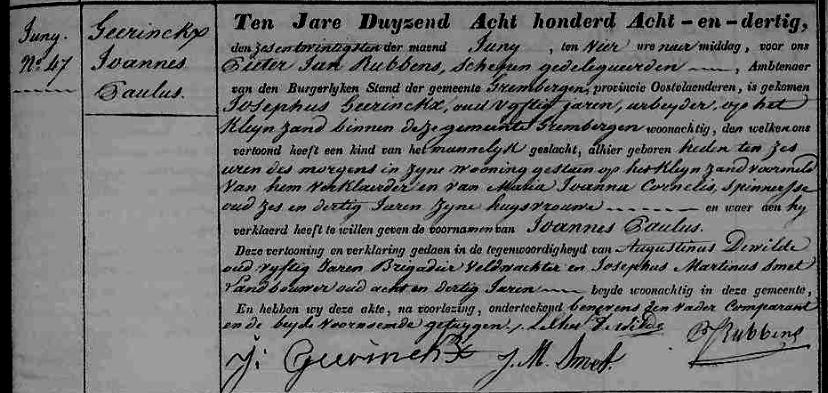 Juny.
Nº 47
Geerinckx
Joannes
Paulus.
Ten Jare Duyzend Acht honderd Acht-en-dertig,
den zesentwintigsten der maend Juny, ten Vier ure naer middag, voor ons
Pieter Jan Rubbens, Schepen gedelegueerden, Ambtenaer
van den Burgerlyken Stand der gemeente Grembergen, provincie Oostvlaenderen, is gekomen
Josephus Geerinckx, oud vyftig jaren, arbeyder, op het
Kleyn zand binnen deze gemeente Grembergen woonachtig, den welken ons
vertoond heeft een kind van het mannelyk geslacht, alhier geboren heden ten zes
uren des morgens in zyne wooning gestaen op het Kleyn zand voormeld
van hem verklaerder en van Maria Joanna Cornelis, Spinnersse
oud zes en dertig Jaren zyne huysvrouwe en waer aen hy
verklaerd heeft te willen geven de voornamen van Joannes Paulus.
Deze vertooning en verklaring gedaen in de tegenwoordigheyd van Augustinus Dewilde
oud vyftig Jaren Brigadier Veldwachter en Josephus Martinus Smet
Landbouwer oud acht en dertig Jaren beyde woonachtig in deze gemeente,
En hebben wy deze akte, na voorlezing, onderteekend benevens den vader Comparant
en de beyde voornoemde getuygen,
P J Rubbens
J: Geerinckx
J. M. Smet.